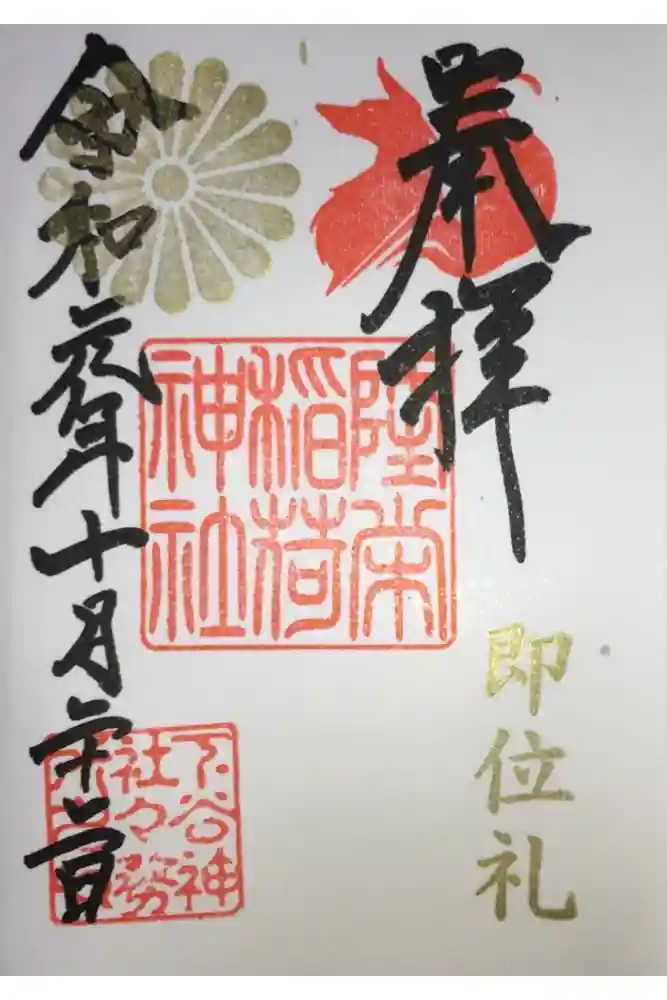 奉拝
即位礼
隆栄
稲荷
神社
令和元年十月廿二日
下谷神
社々務